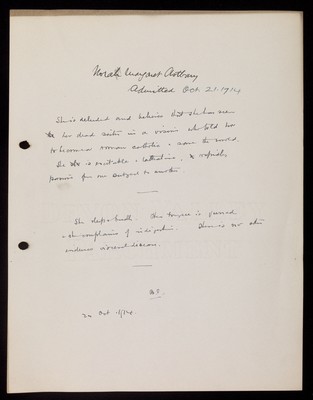 Norah Margaret
Admitted Oct. 21. 1914
She is deluded and believes that she has seen
her dead sister in a vision who told her
to become a Roman catholic & save the world.
She is excitable & talkative, & rapidly
passing from one subject to another
She sleeps badly. Her tongue is furred
& she complains of indigestion. Shows no other
evidence of visceral disease.
22 Oct. 1914.